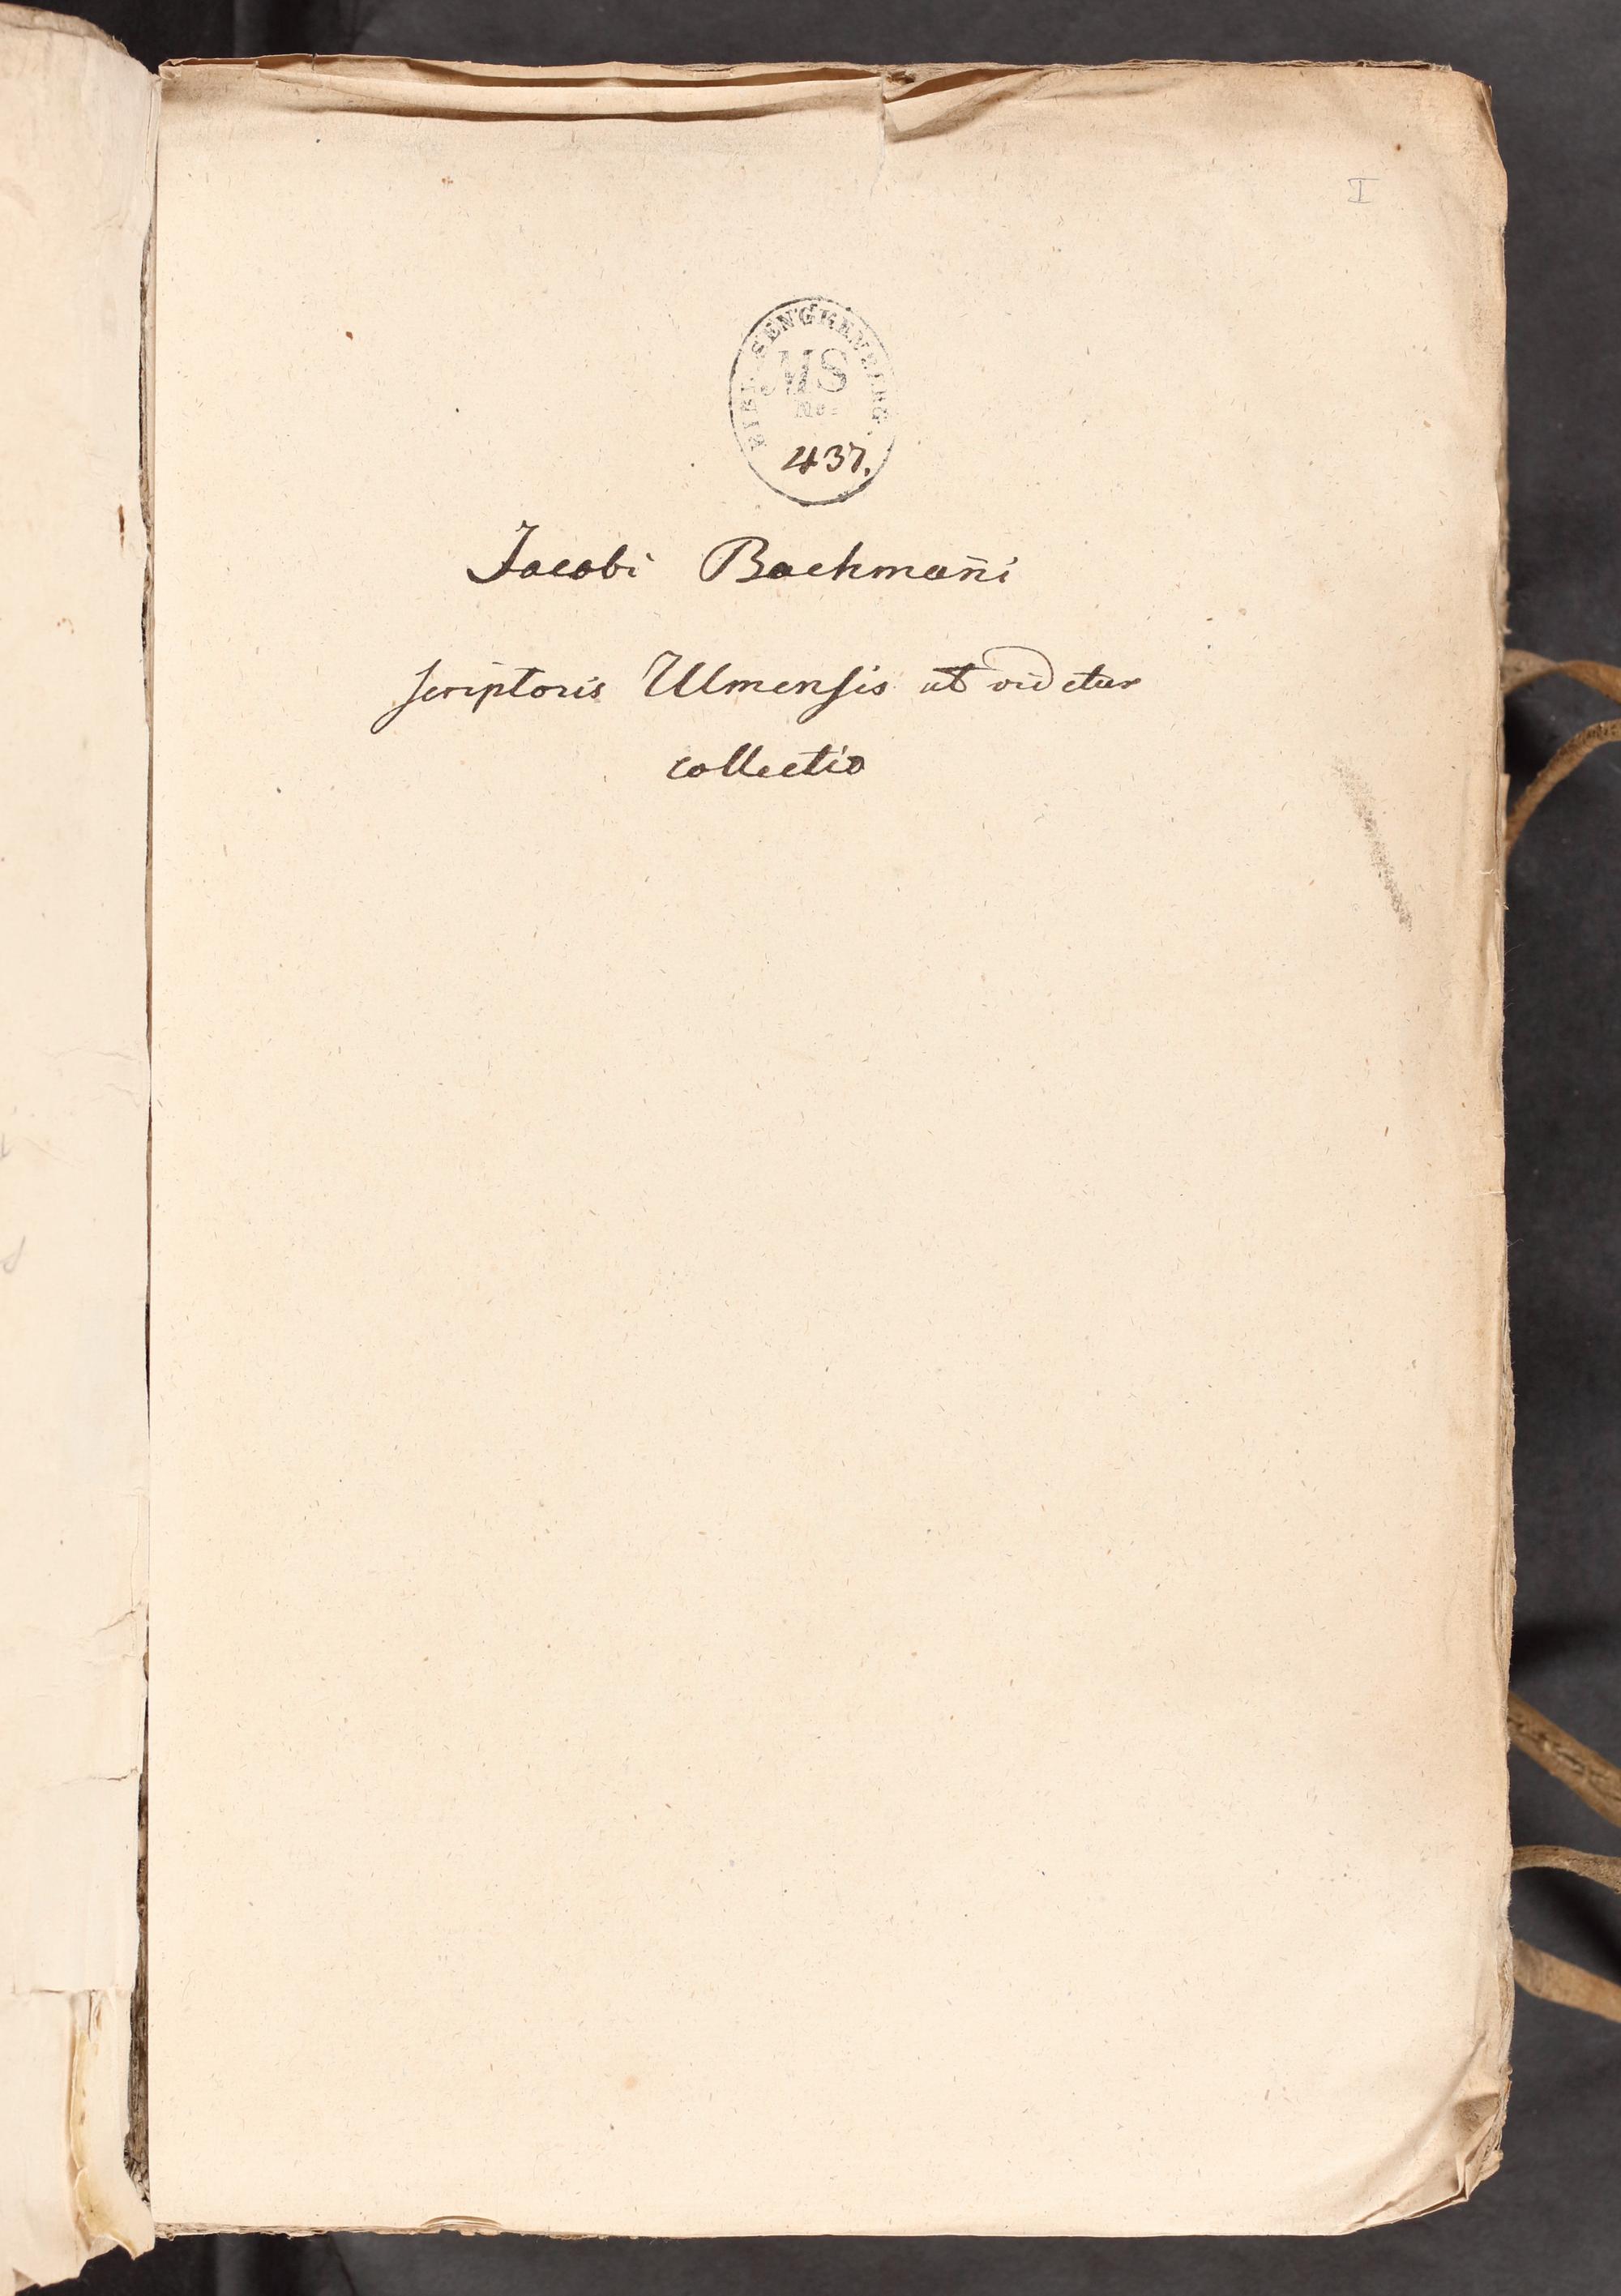 I
BIBL. SENCKENBERG.
MS
437.
Jacobi Bachman̄i
scriptoris Ulmensis ut videtur
collectio